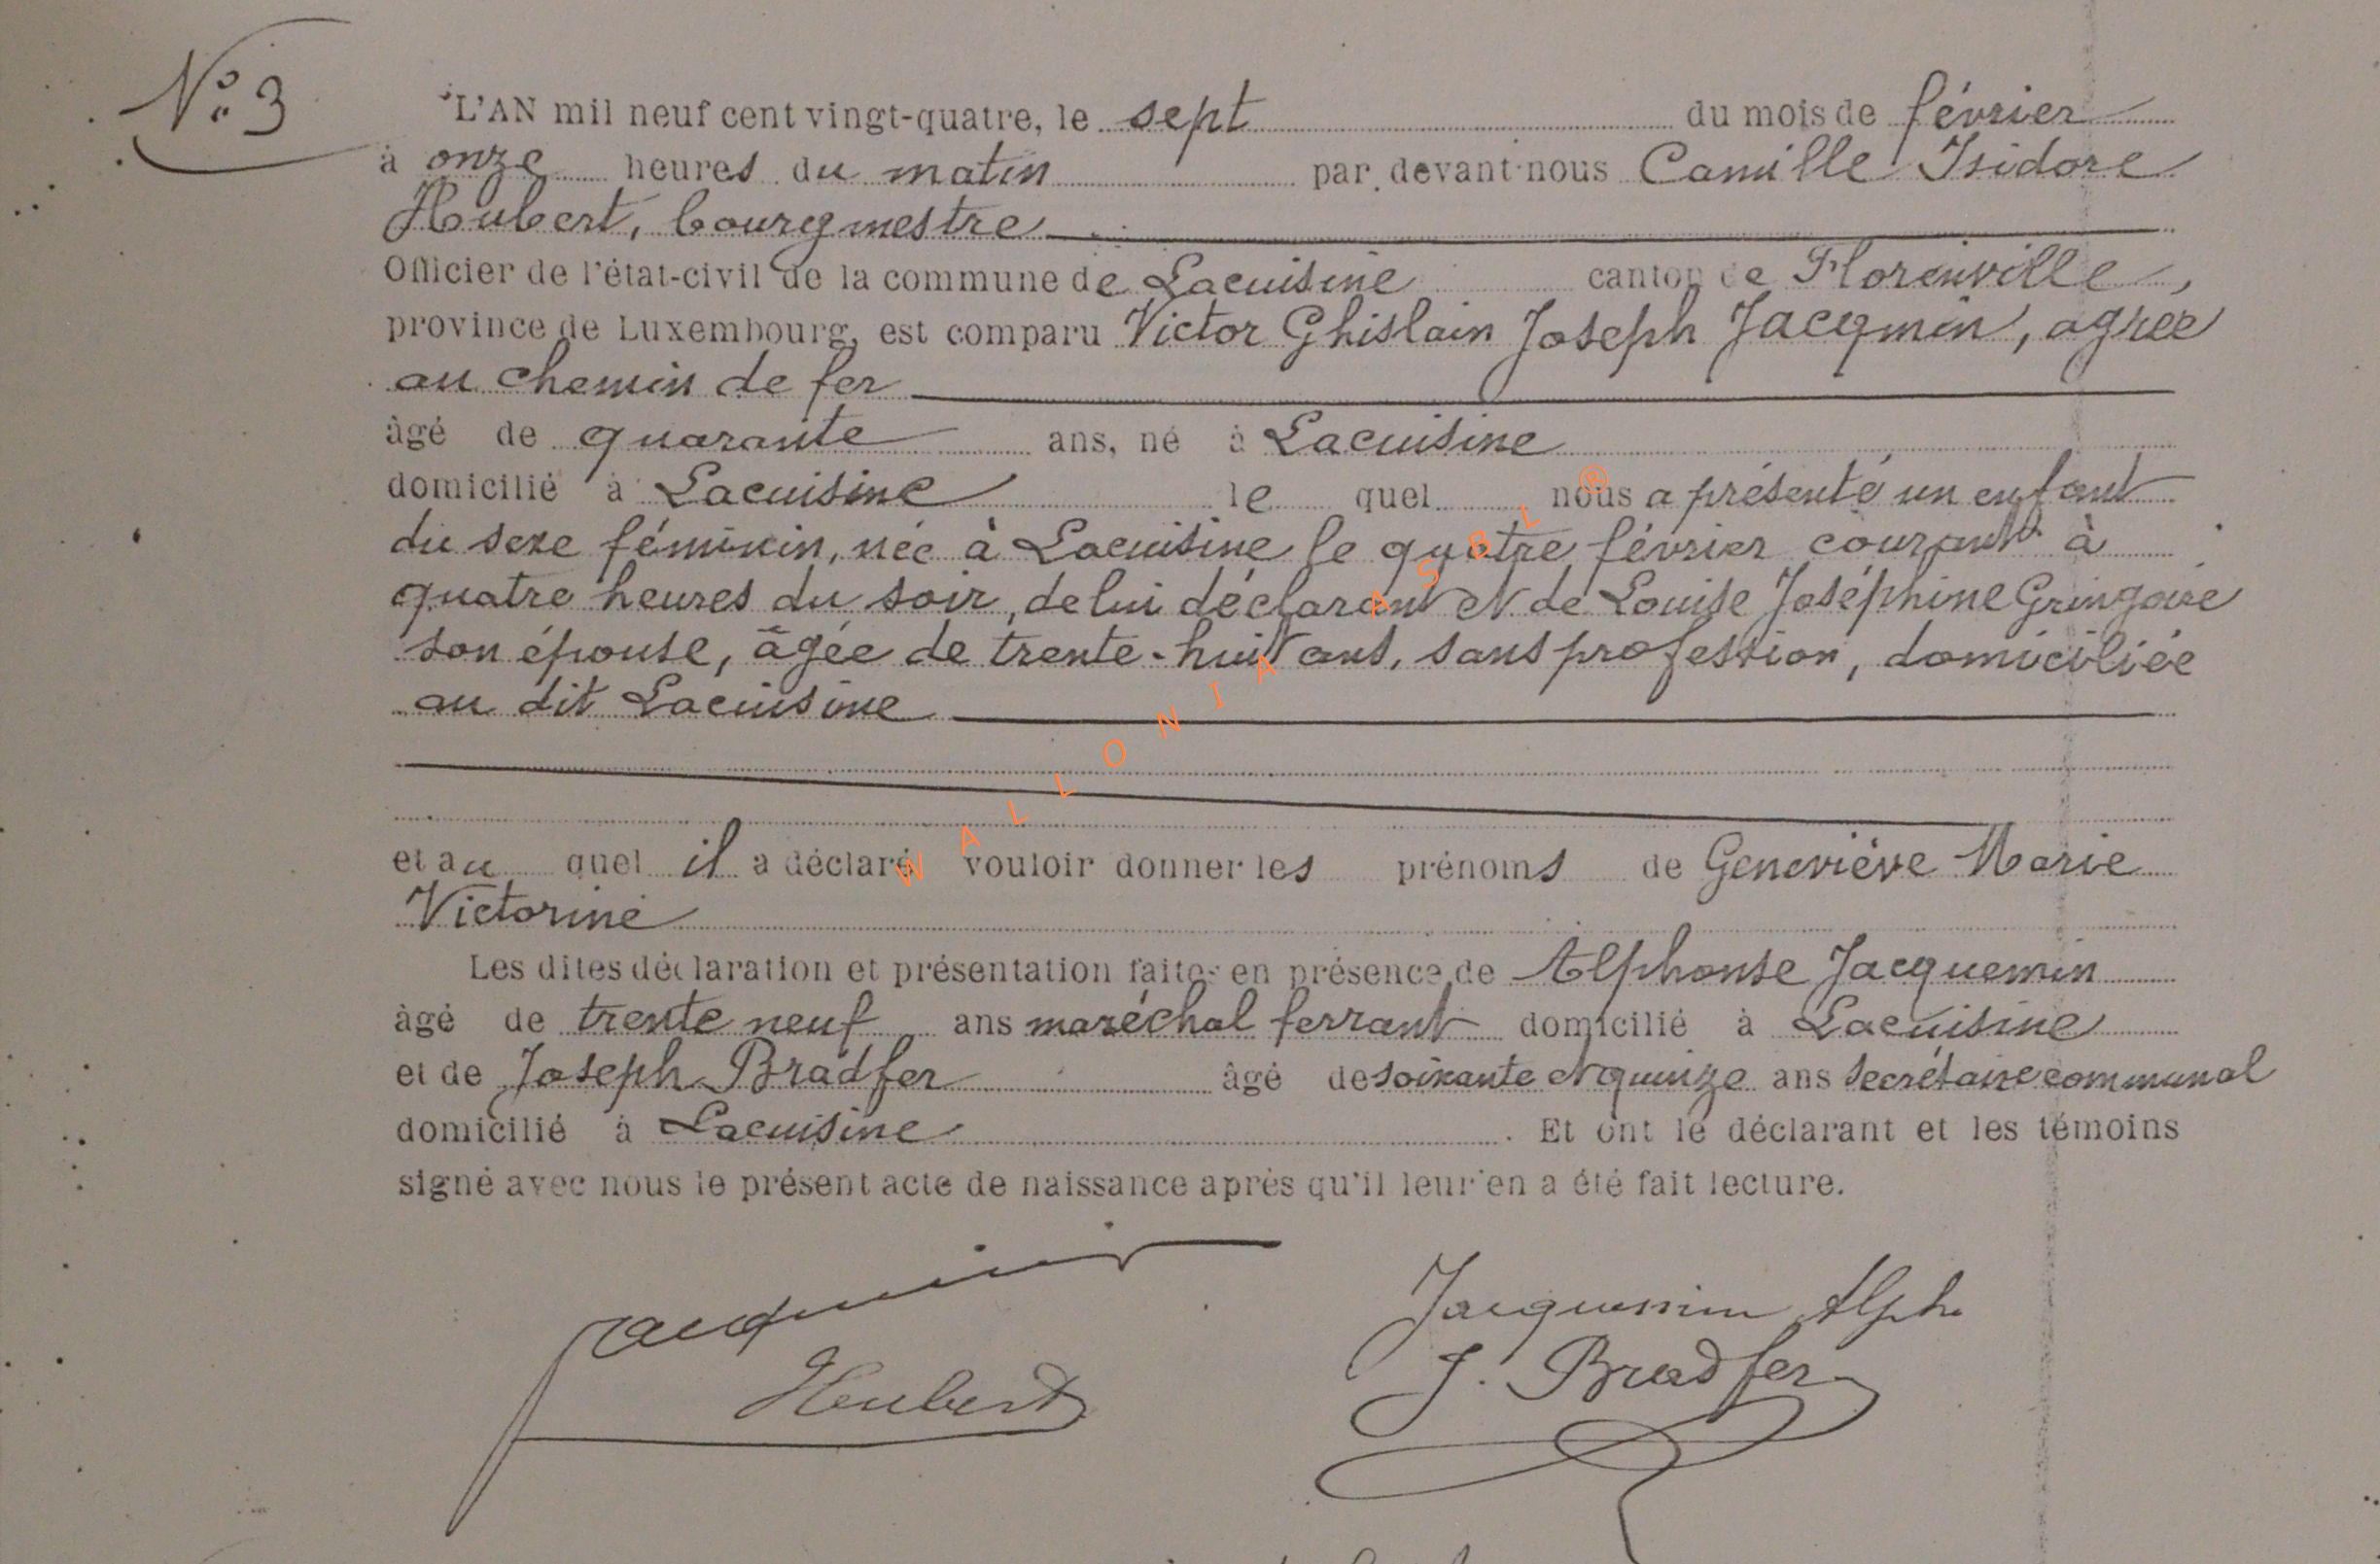 N° 3
L'AN mil neuf cent vingt-quatre, le sept du mois de février
à onze heures du matin par devant nous Camille Isidore
Hubert, bourgmestre
Officier de l'état-civil de la commune de Lacuisine canton de Florenville,
province de Luxembourg, est comparu Victor Ghislain Joseph Jacqmin, agréé
au chemin de fer
âgé de quarante ans, né à Lacuisine
domicilié à Lacuisine le quel nous a présenté un enfant
du sexe féminin, née à Lacuisine le quatre février courant à
quatre heures du soir, de lui déclarant et de Louise Joséphine Gringoire
son épouse, âgée de trente-huit ans, sans profession, domiciliée
au dit Lacuisine
et au quel il a déclaré vouloir donner les prénoms de Geneviève Marie
Victorine
Les dites déclaration et présentation faites en présence de Alphonse Jacquemin
âgé de trente neuf ans maréchal ferrant domicilié à Lacuisine
et de Joseph Bradfer âgé de soixante et quinze ans secrétaire communal
domicilié à Lacuisine. Et ont le déclarant et les témoins
signé avec nous le présent acte de naissance après qu'il leur en a été fait lecture.
Jacqmin
Jacquemin Alph.
J. Bradfer
Hubert
WALLONIA ASBL ®